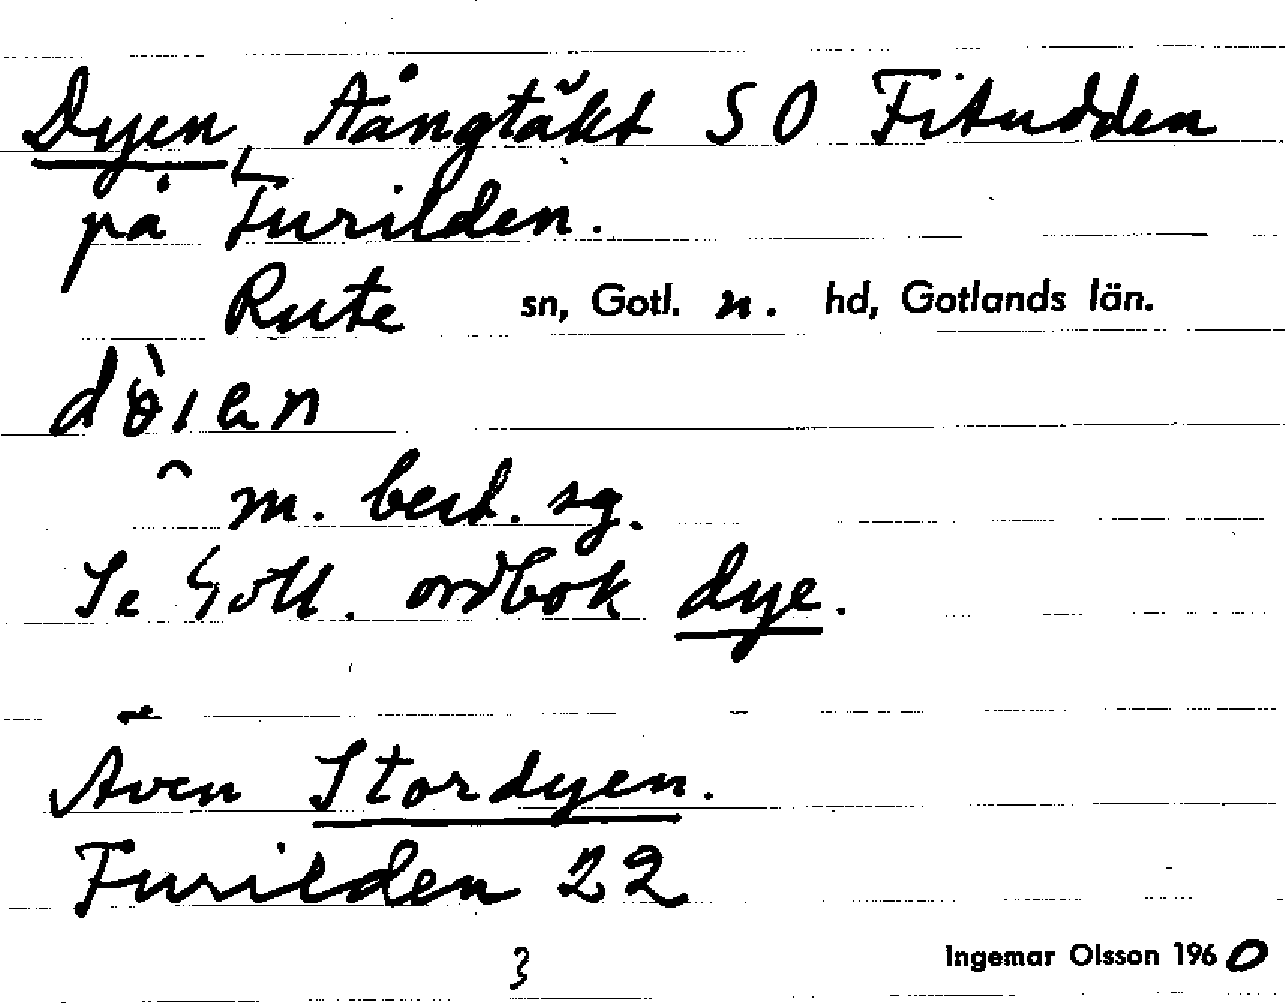 Dyen, tångtäkt SO Fituddden
på Furilden.
Rute sn, Gotl. n. hd, Gotlands län.
dòıen
m. best. sg.
Se Gotl. ordbok dye.
Även Stordyen.
Furilden 22
3 Ingemar Olsson 1960